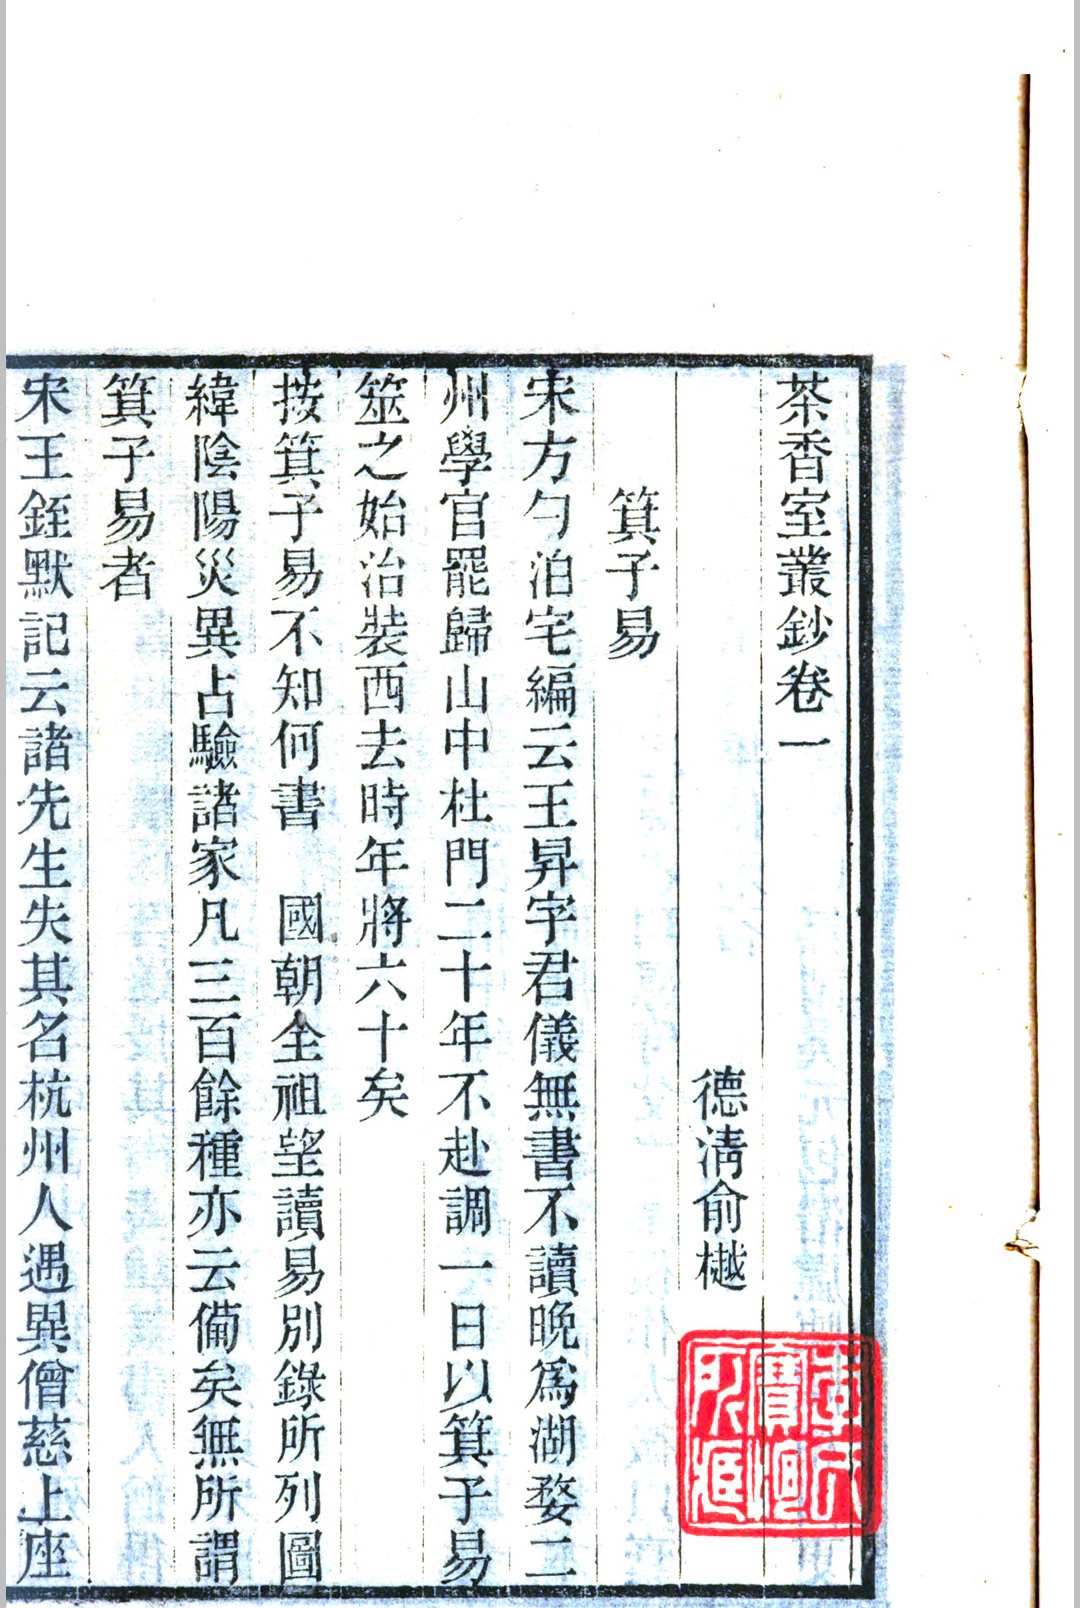 茶香室叢鈔卷一
德清俞樾
箕子易
宋方勺泊宅編云王昇字君儀無書不讀晚爲湖婺二
州學官罷歸山中杜門二十年不赴調一日以箕子易
筮之始治裝西去時年將六十矣
按箕子易不知何書　國朝全祖望讀易別錄所列圖
緯陰陽災異占驗諸家凡三百餘種亦云備矣無所謂
箕子易者
宋王銍默記云諸先生失其名杭州人遇異僧慈上座